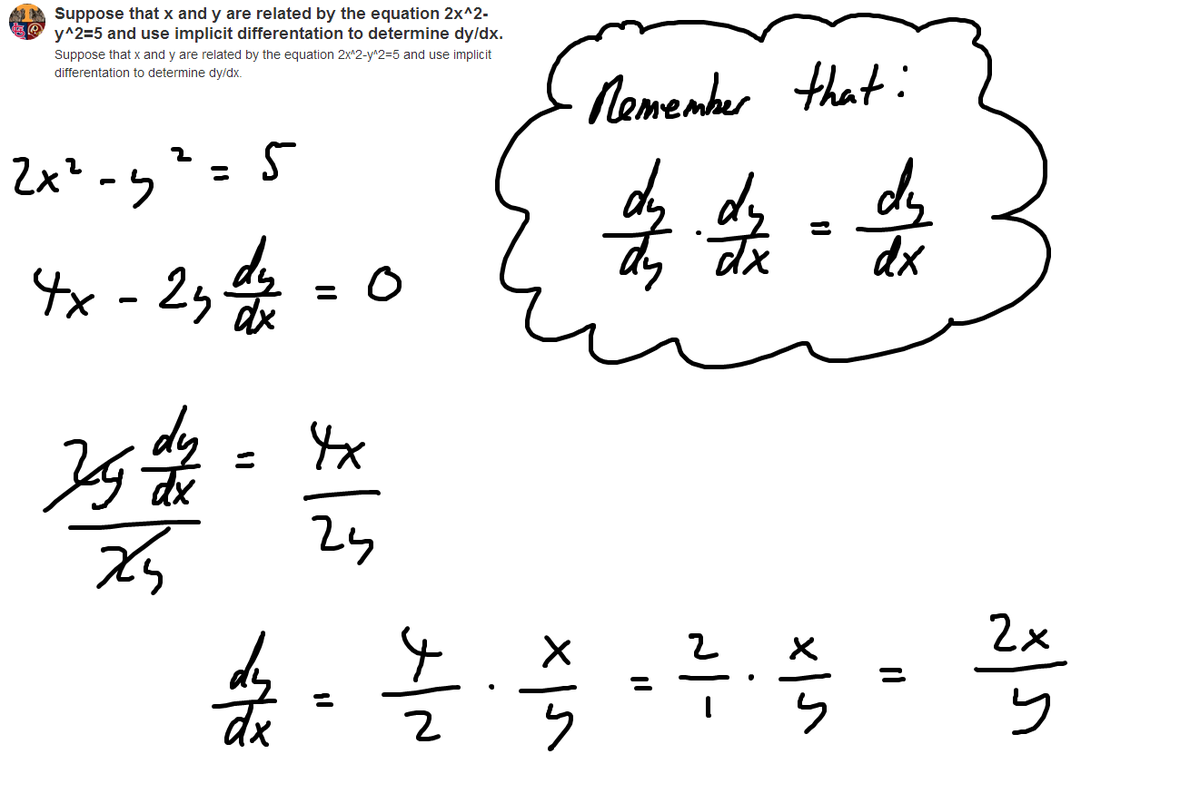 Suppose that x and y are related by the equation 2x^2-
y^2=5 and use implicit differentation to determine dy/dx.
Suppose that x and y are related by the equation 2x^2-y^2=5 and use implicit
differentation to determine dy/dx.
Remember that:
dy/dy · dy/dx = dy/dx
2x² - y² = 5
4x - 2y dy/dx = 0
2y dy/dx / 2y = 4x / 2y
dy/dx = 4/2 · x/y = 2/1 · x/y = 2x/y